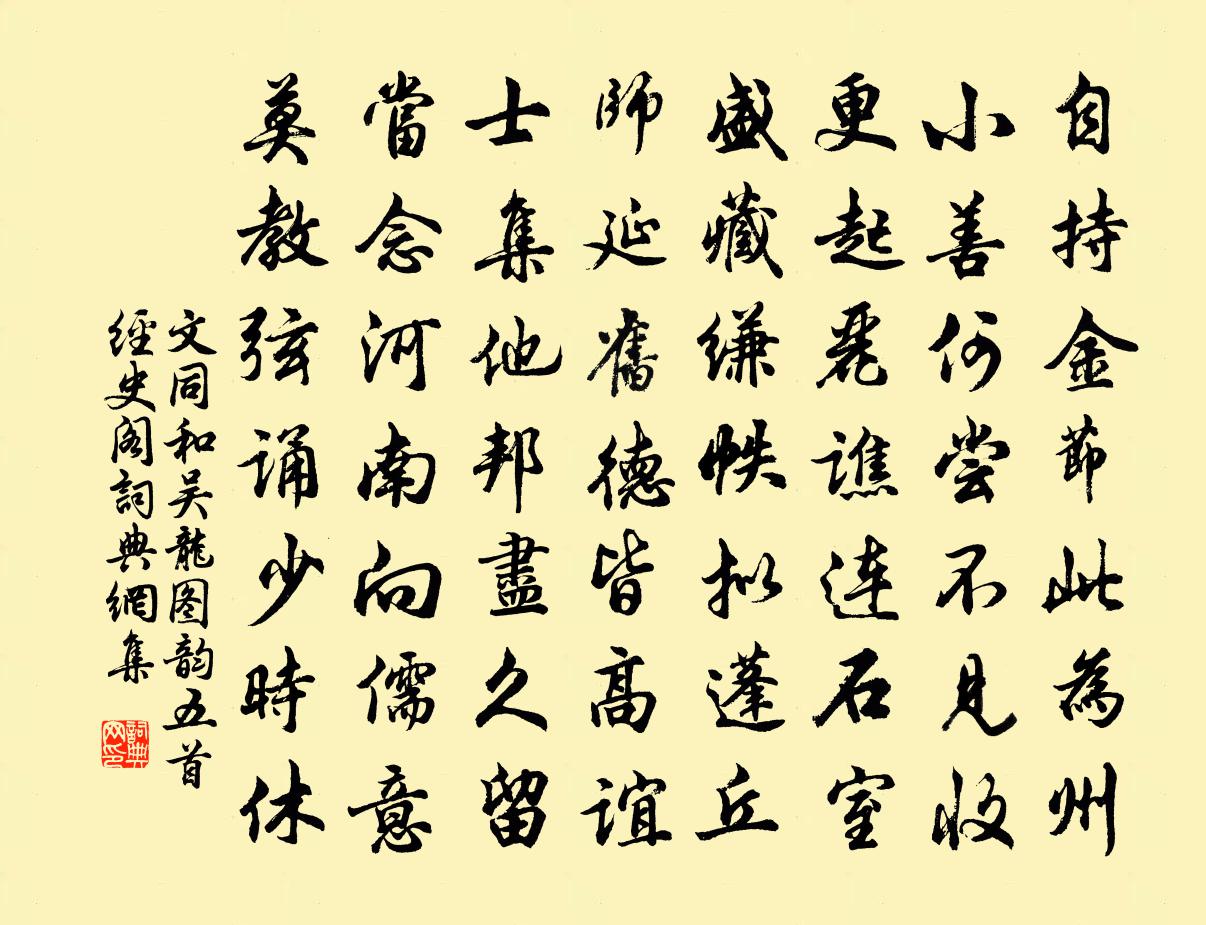 自持金節此為州
小善何尝不見收
更起麗譙連石室
盛藏縑帙拟蓬丘
師延舊德皆高誼
士集他邦盡久留
當念河南向儒意
莫教弦誦少時休
文同和吴龍图韵五首
經史阁詞典網集
詞典网印